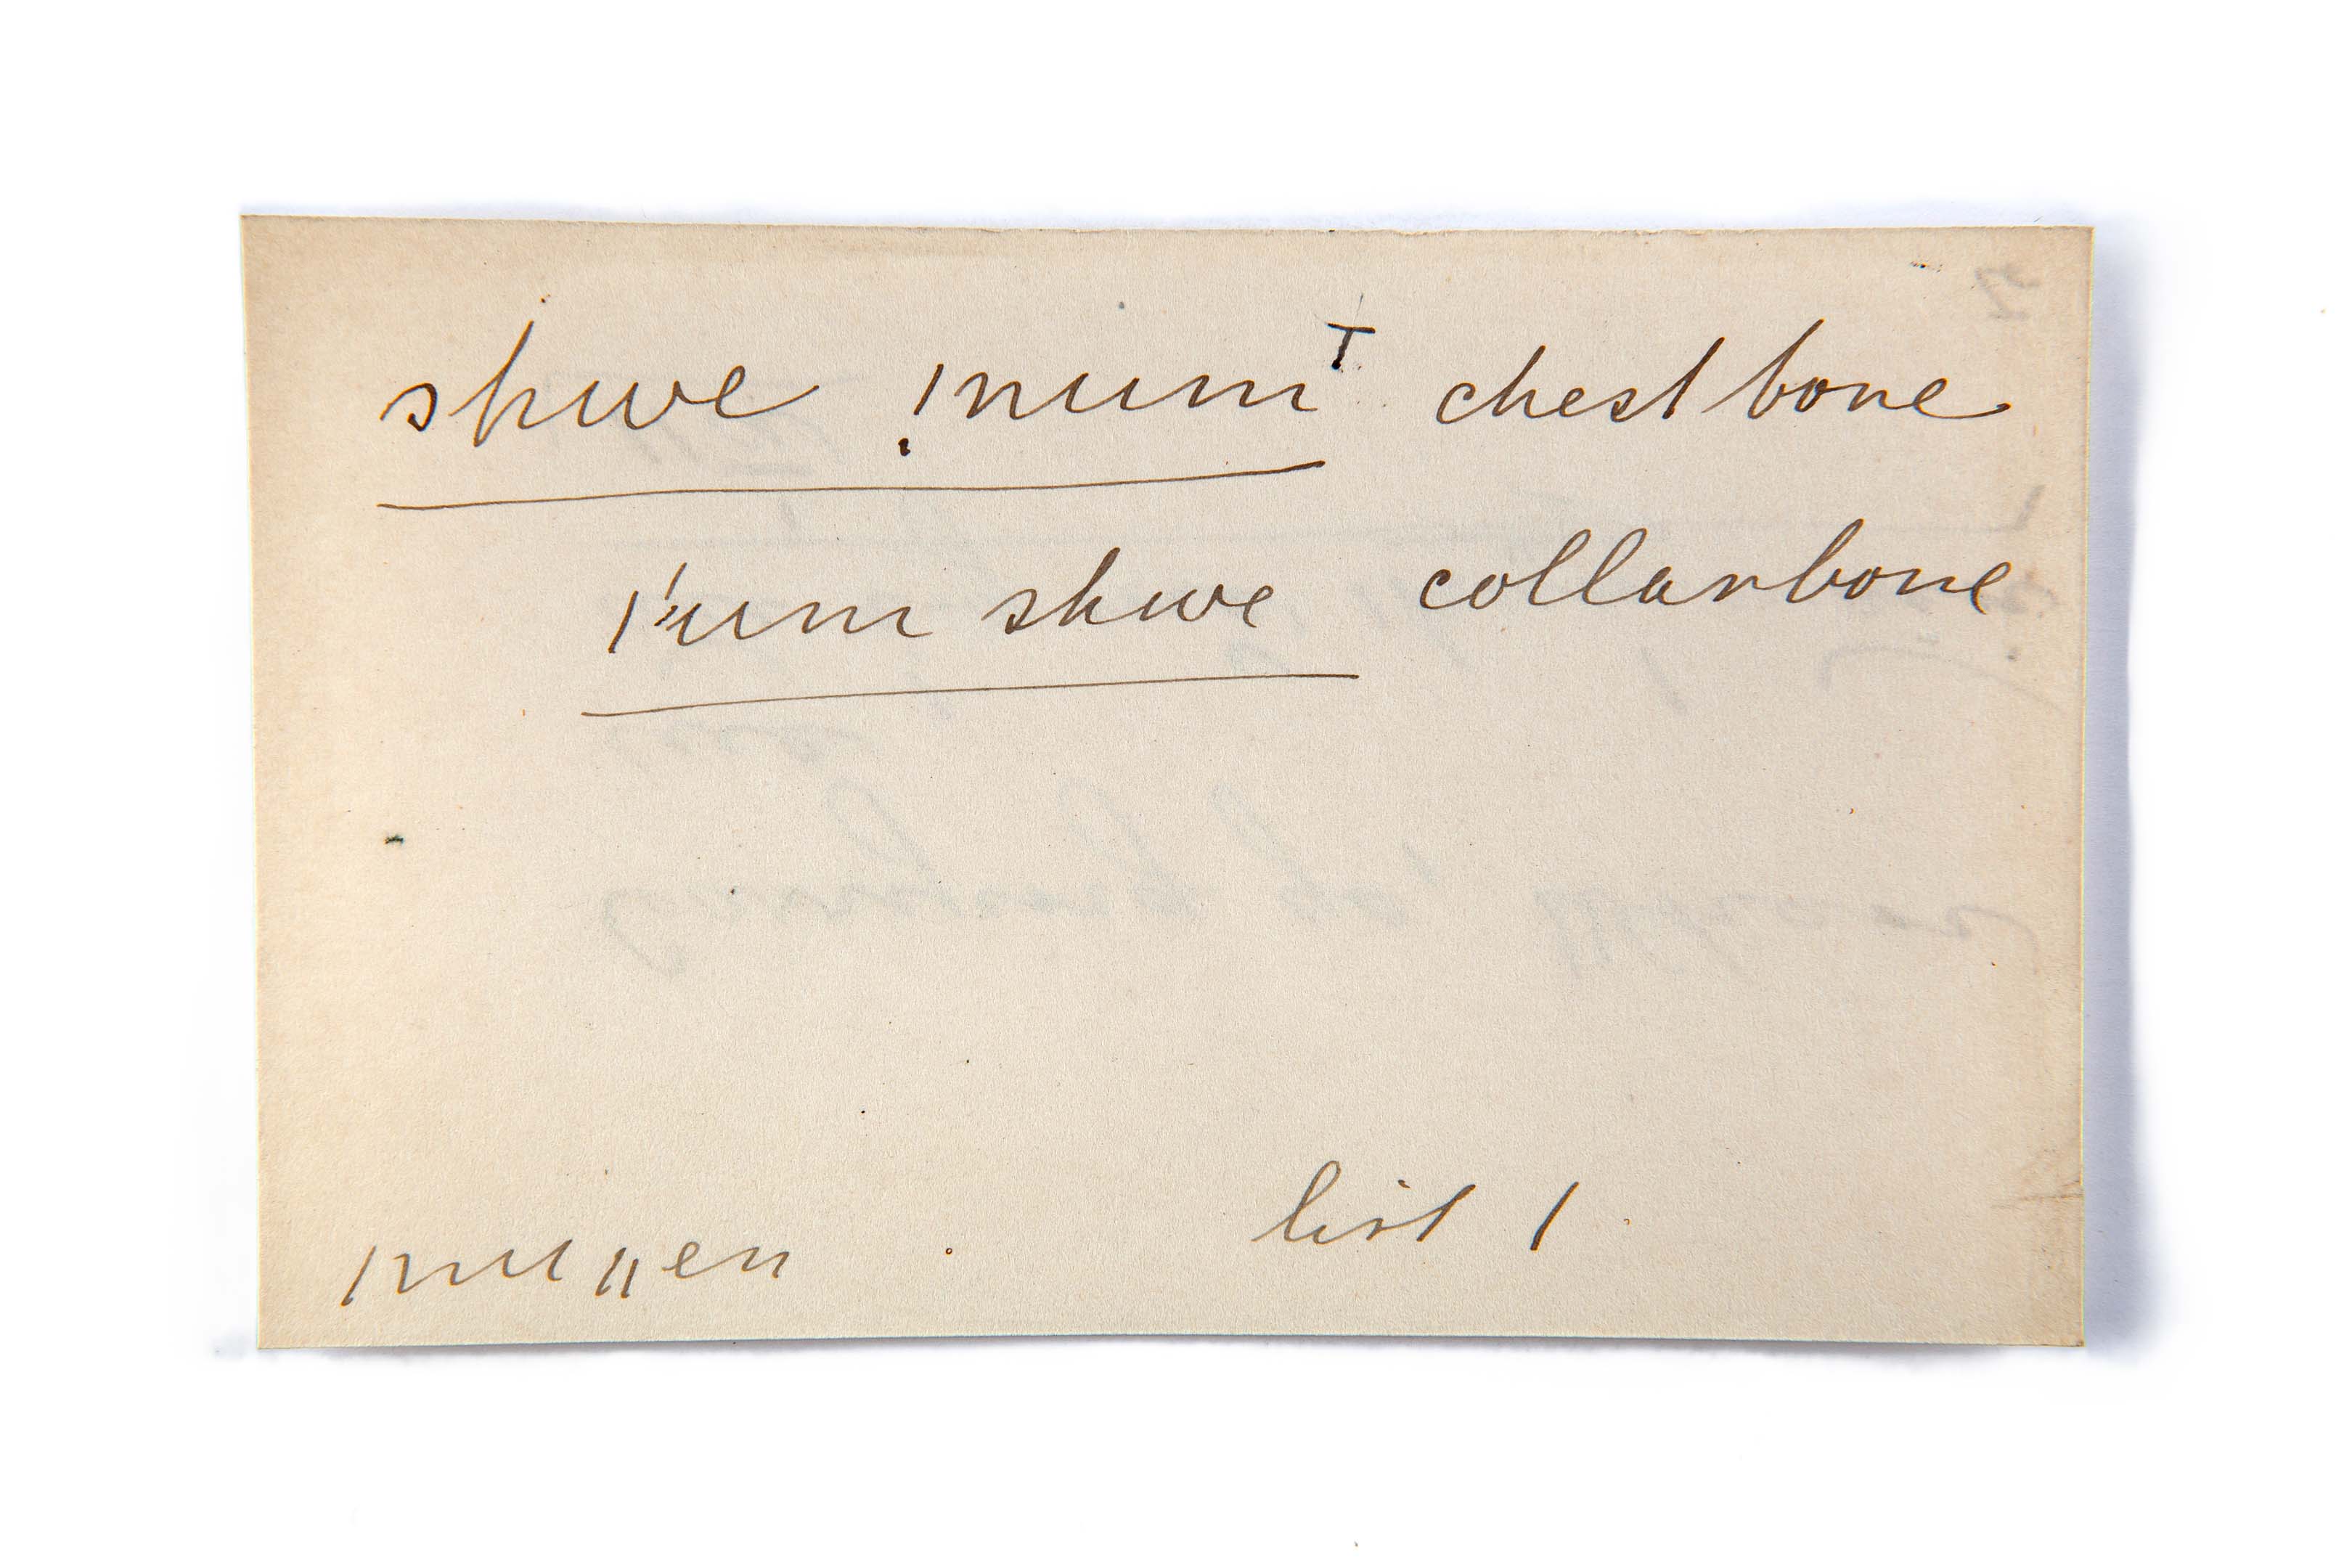 shwe ǃnum⊤ chest bone
ǀ'um shwe collarbone
ǀnuǁen list 1